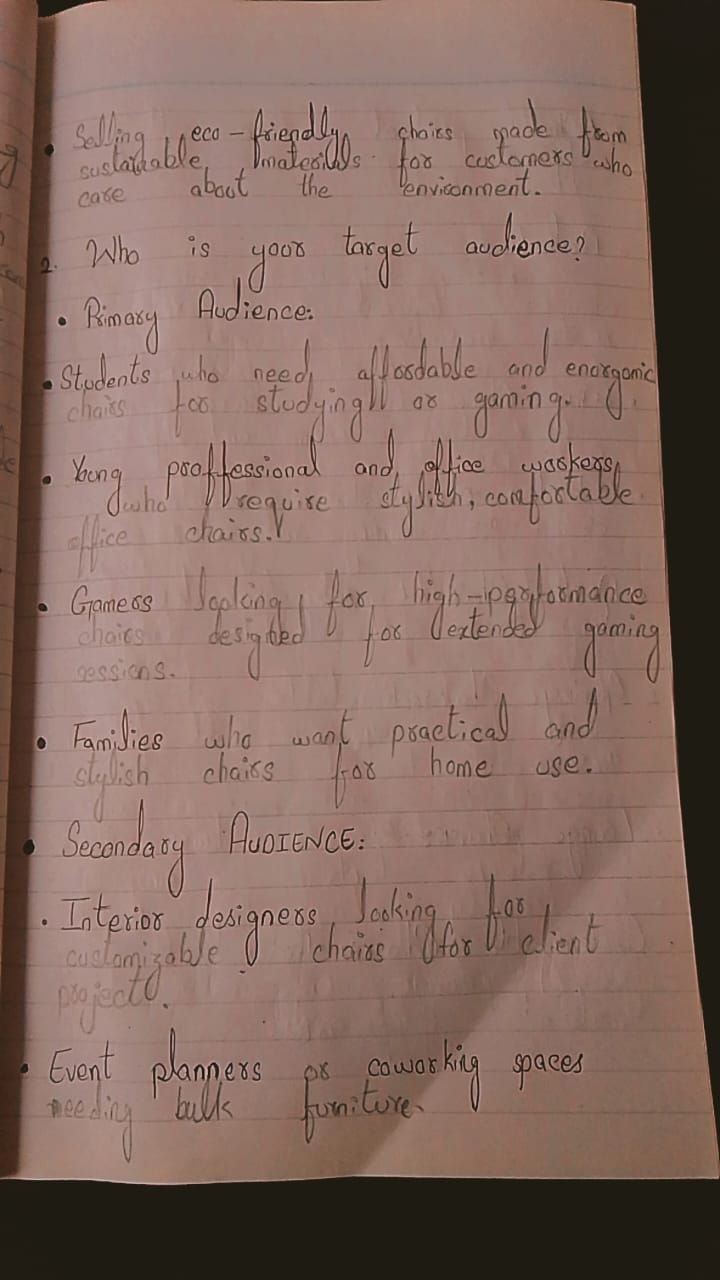 • Selling eco-friendly chairs made from
sustainable materials for customers who
care about the environment.
2. Who is your target audience?
• Primary Audience:
• Students who need affordable and enorgonic
chairs for studying or gaming.
• Young proffessional and office workers
who require stylish, comfortable
office chairs.
• Gamers looking for high-performance
chairs designed for extended gaming
sessions.
• Families who want practical and
stylish chairs for home use.
• Secondary AUDIENCE:
• Interior designers looking for
customizable chairs for client
project.
• Event planners or coworking spaces
needing bulk furniture.